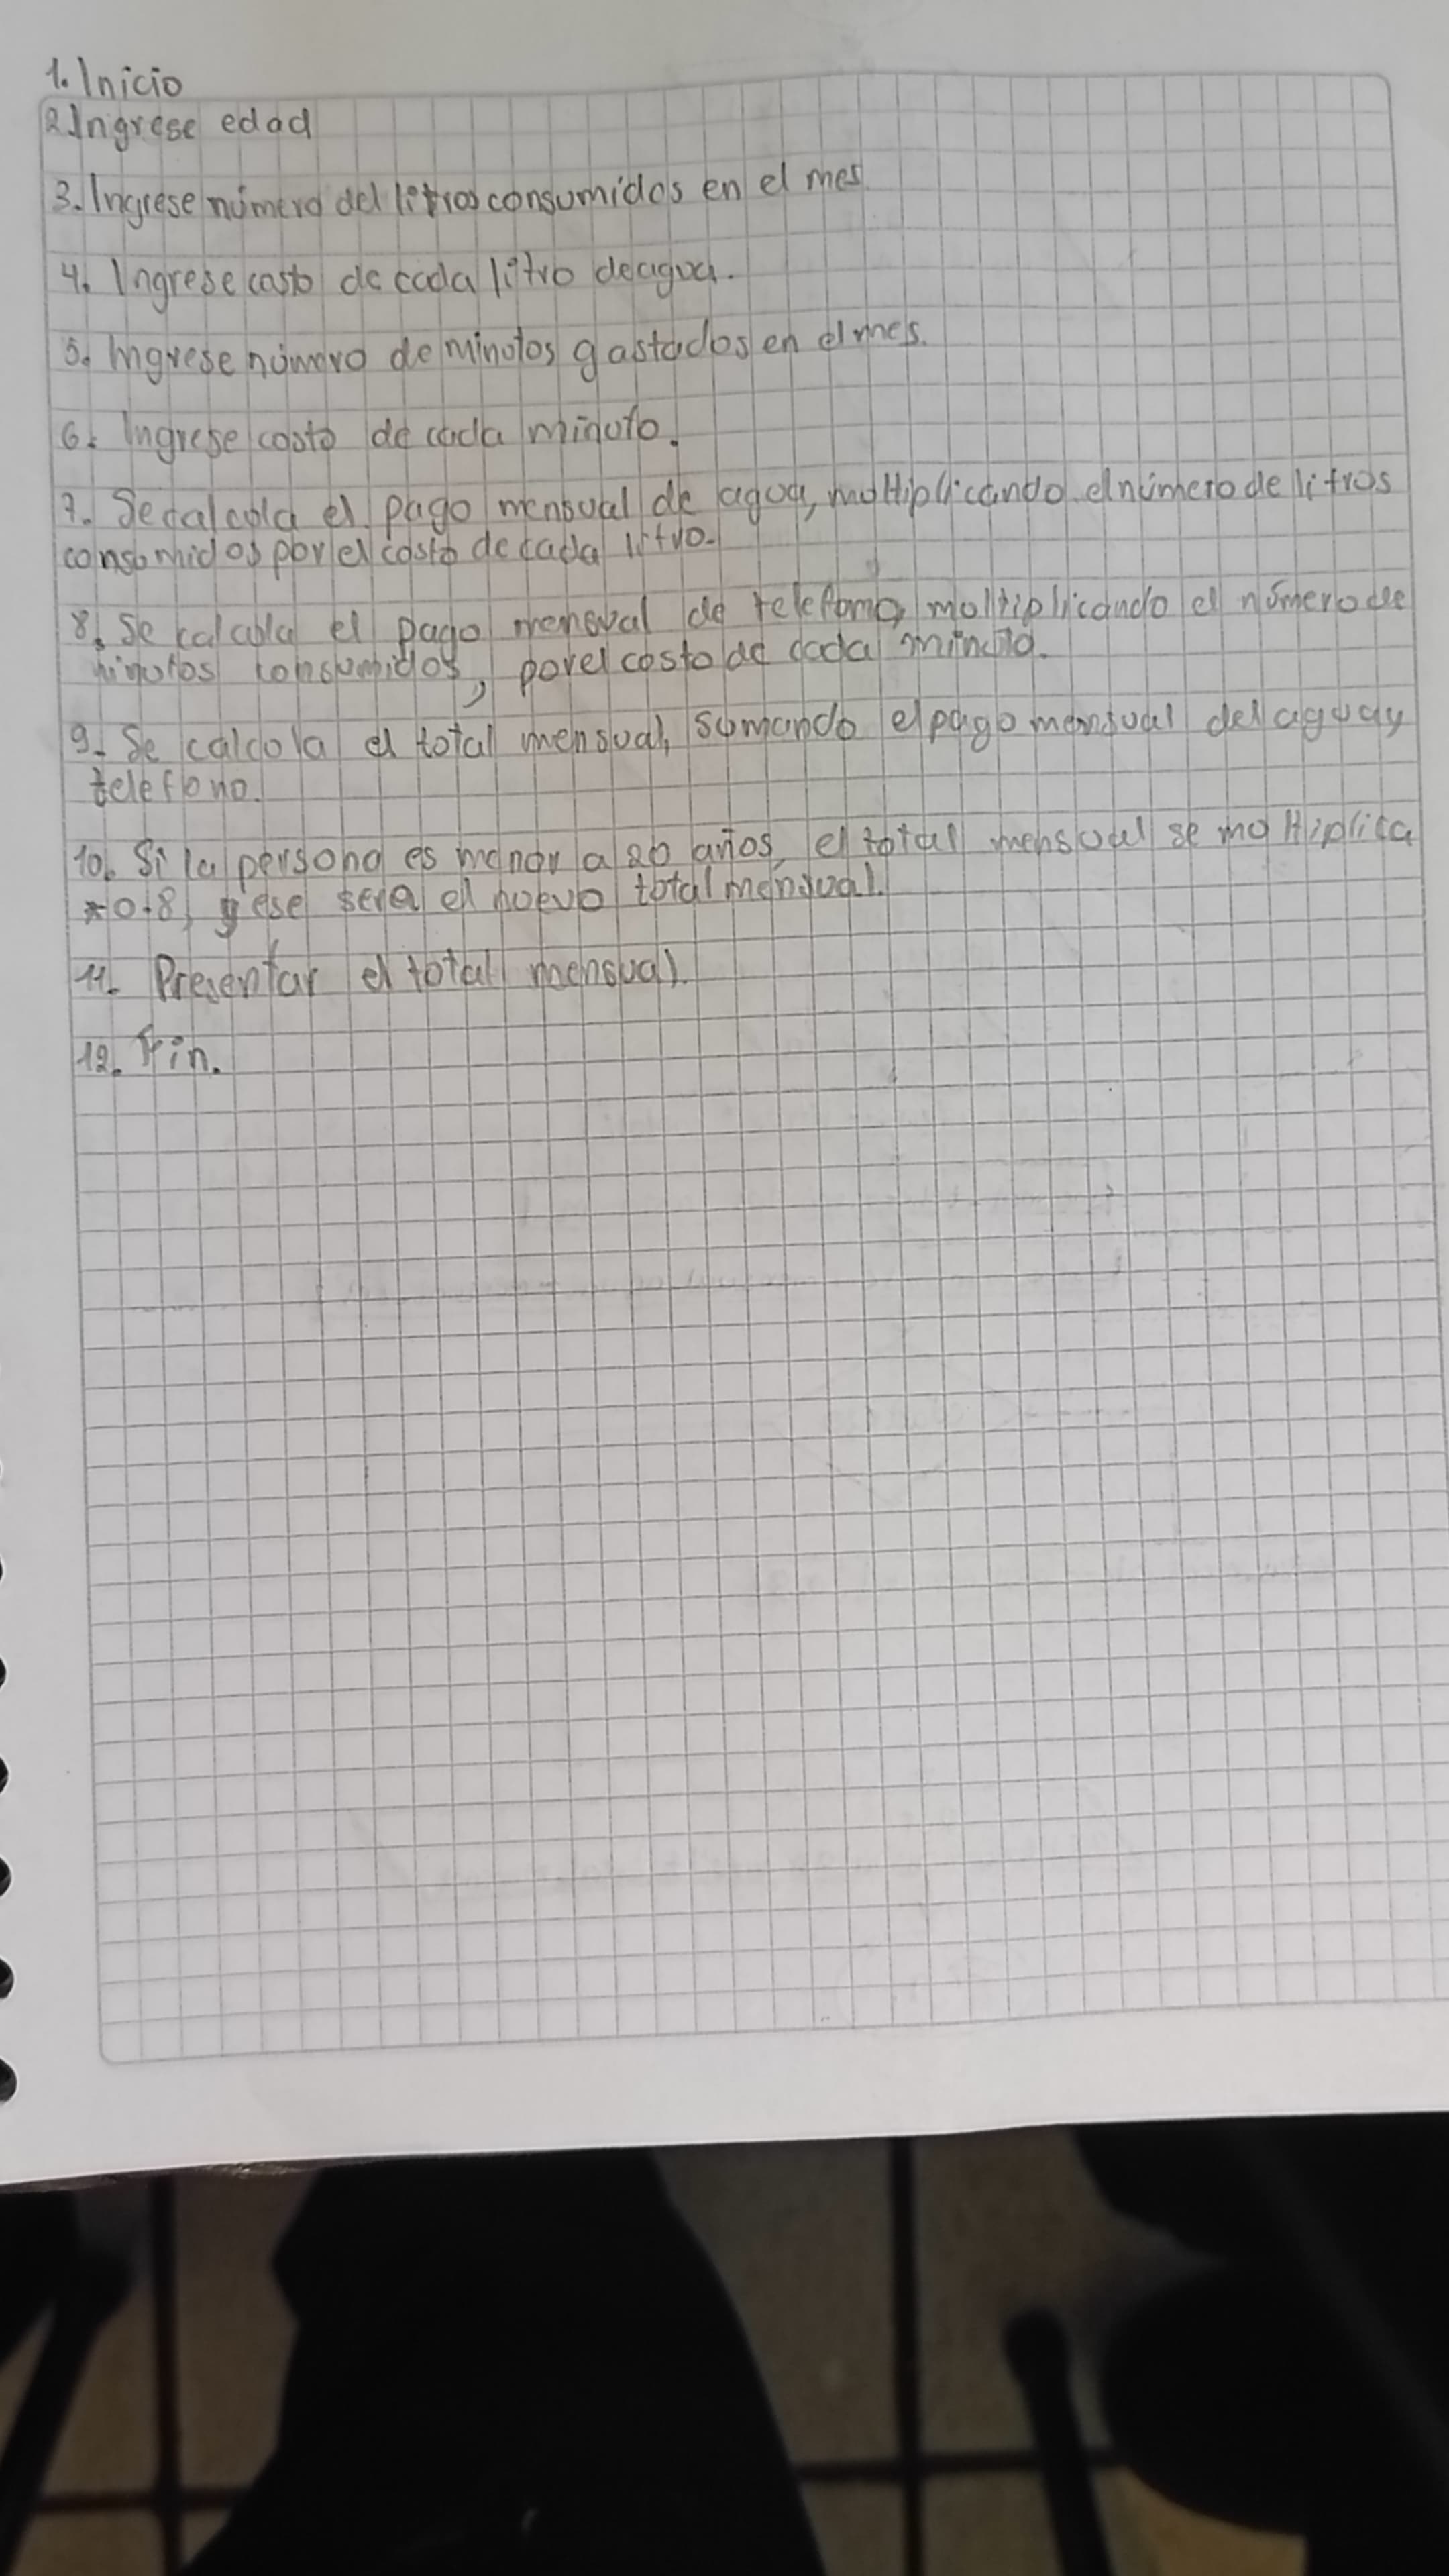 1. Inicio
2. Ingrese edad
3. Ingrese número del litros consumidos en el mes.
4. Ingrese costo de cada litro de agua.
5. Ingrese número de minutos gastados en el mes.
6. Ingrese costo de cada minuto.
7. Se calcula el pago mensual de agua, multiplicando el número de litros
consumidos por el costo de cada litro.
8. Se calcula el pago mensual de telefono, multiplicando el número de
minutos consumidos, por el costo de cada minuto.
9. Se calcula el total mensual, sumando el pago mensual del agua y
telefono.
10. Si la persona es menor a 20 años, el total mensual se multiplica
*0.8, y ese sera el nuevo total mensual.
11. Presentar el total mensual.
12. Fin.